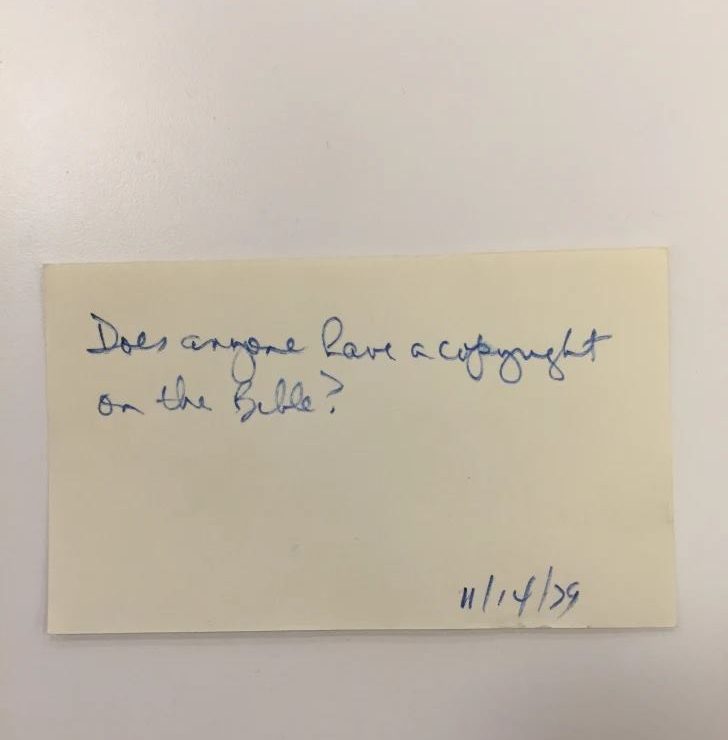 Does anyone have a copyright
on the Bible?
11/14/79